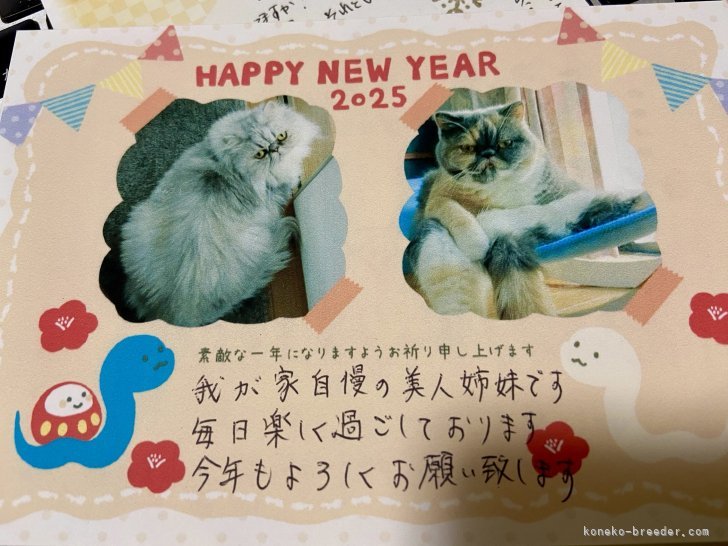 ますか?
それとし
HAPPY NEW YEAR
2025
素敵な一年になりますようお祈り申し上げます
我が家自慢の美人姉妹です
毎日楽しく過ごしております
今年もよろしくお願い致します
koneko-breeder.com